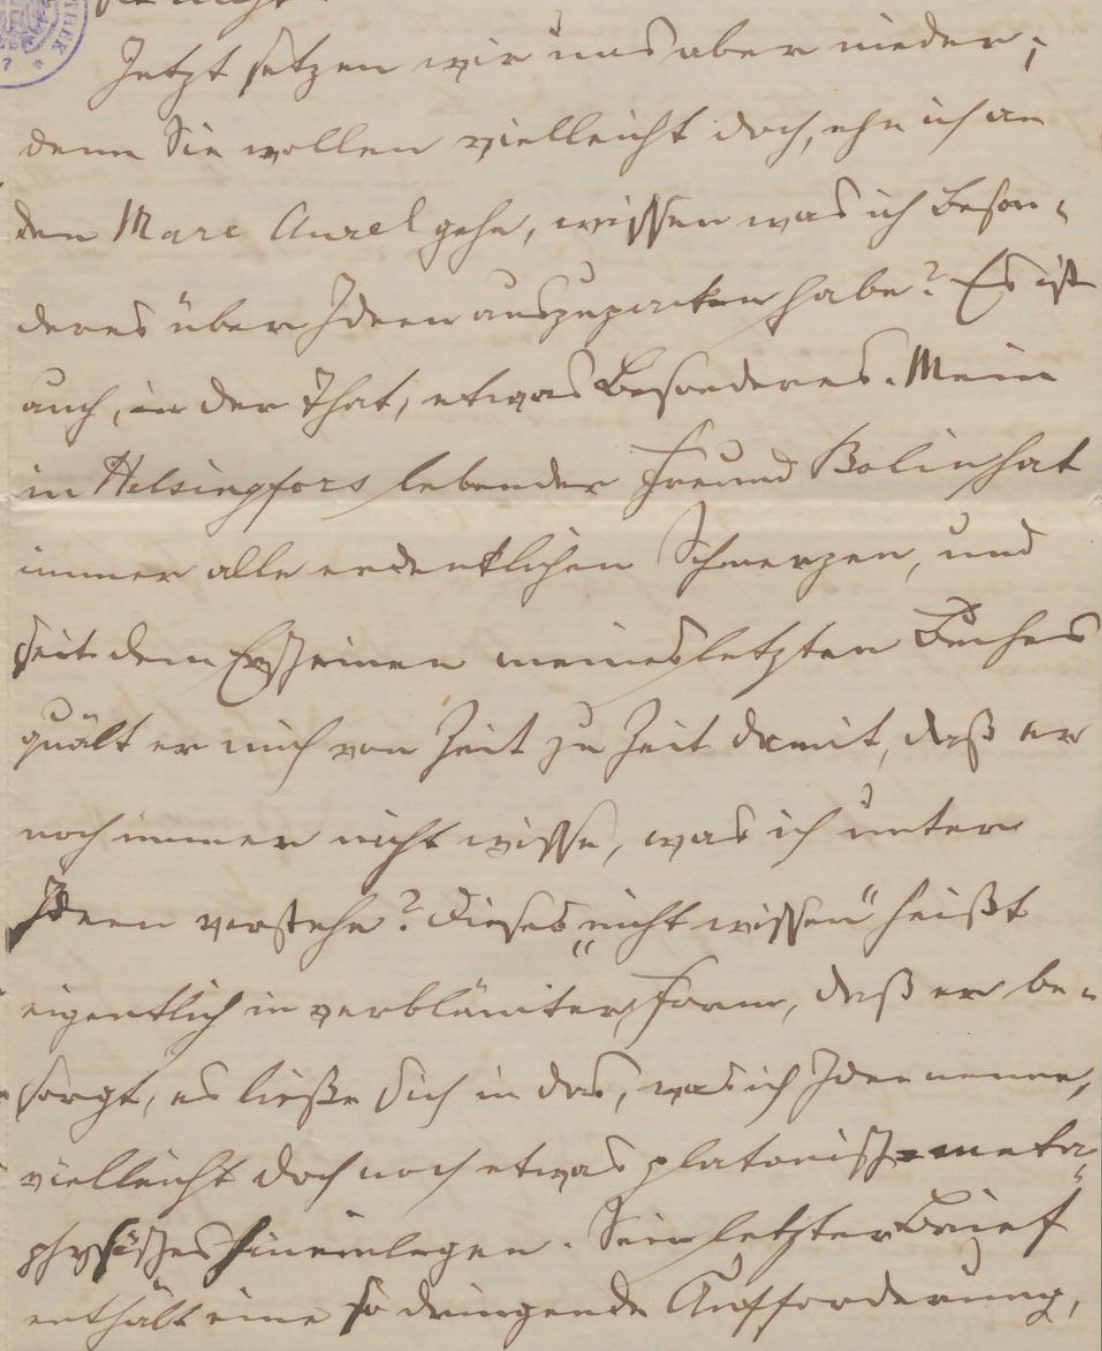 THEK
7 *
Jetzt setzen wir uns aber nieder;
denn Sie wollen vielleicht doch, ehe ich an
den Marc Aurel gehe, wissen was ich Beson-
deres über Ideen auszupacken habe? Es ist
auch, in der That, etwas Besonderes. Mein
in Helsingfors lebender Freund Bolin hat
immer alle erdenklichen Schmerzen, und
seit dem Erscheinen meines letzten Buches
quält er mich von Zeit zu Zeit damit, daß er
noch immer nicht wisse, was ich unter
Ideen verstehe? Dieses „nicht wissen“ heißt
eigentlich in verblümter Form, daß er be-
sorgt, es ließe sich in das, was ich Idee nenne,
vielleicht doch noch etwas platonisch-meta-
physisches hineinlegen. Sein letzter Brief
enthält eine so dringende Aufforderung,